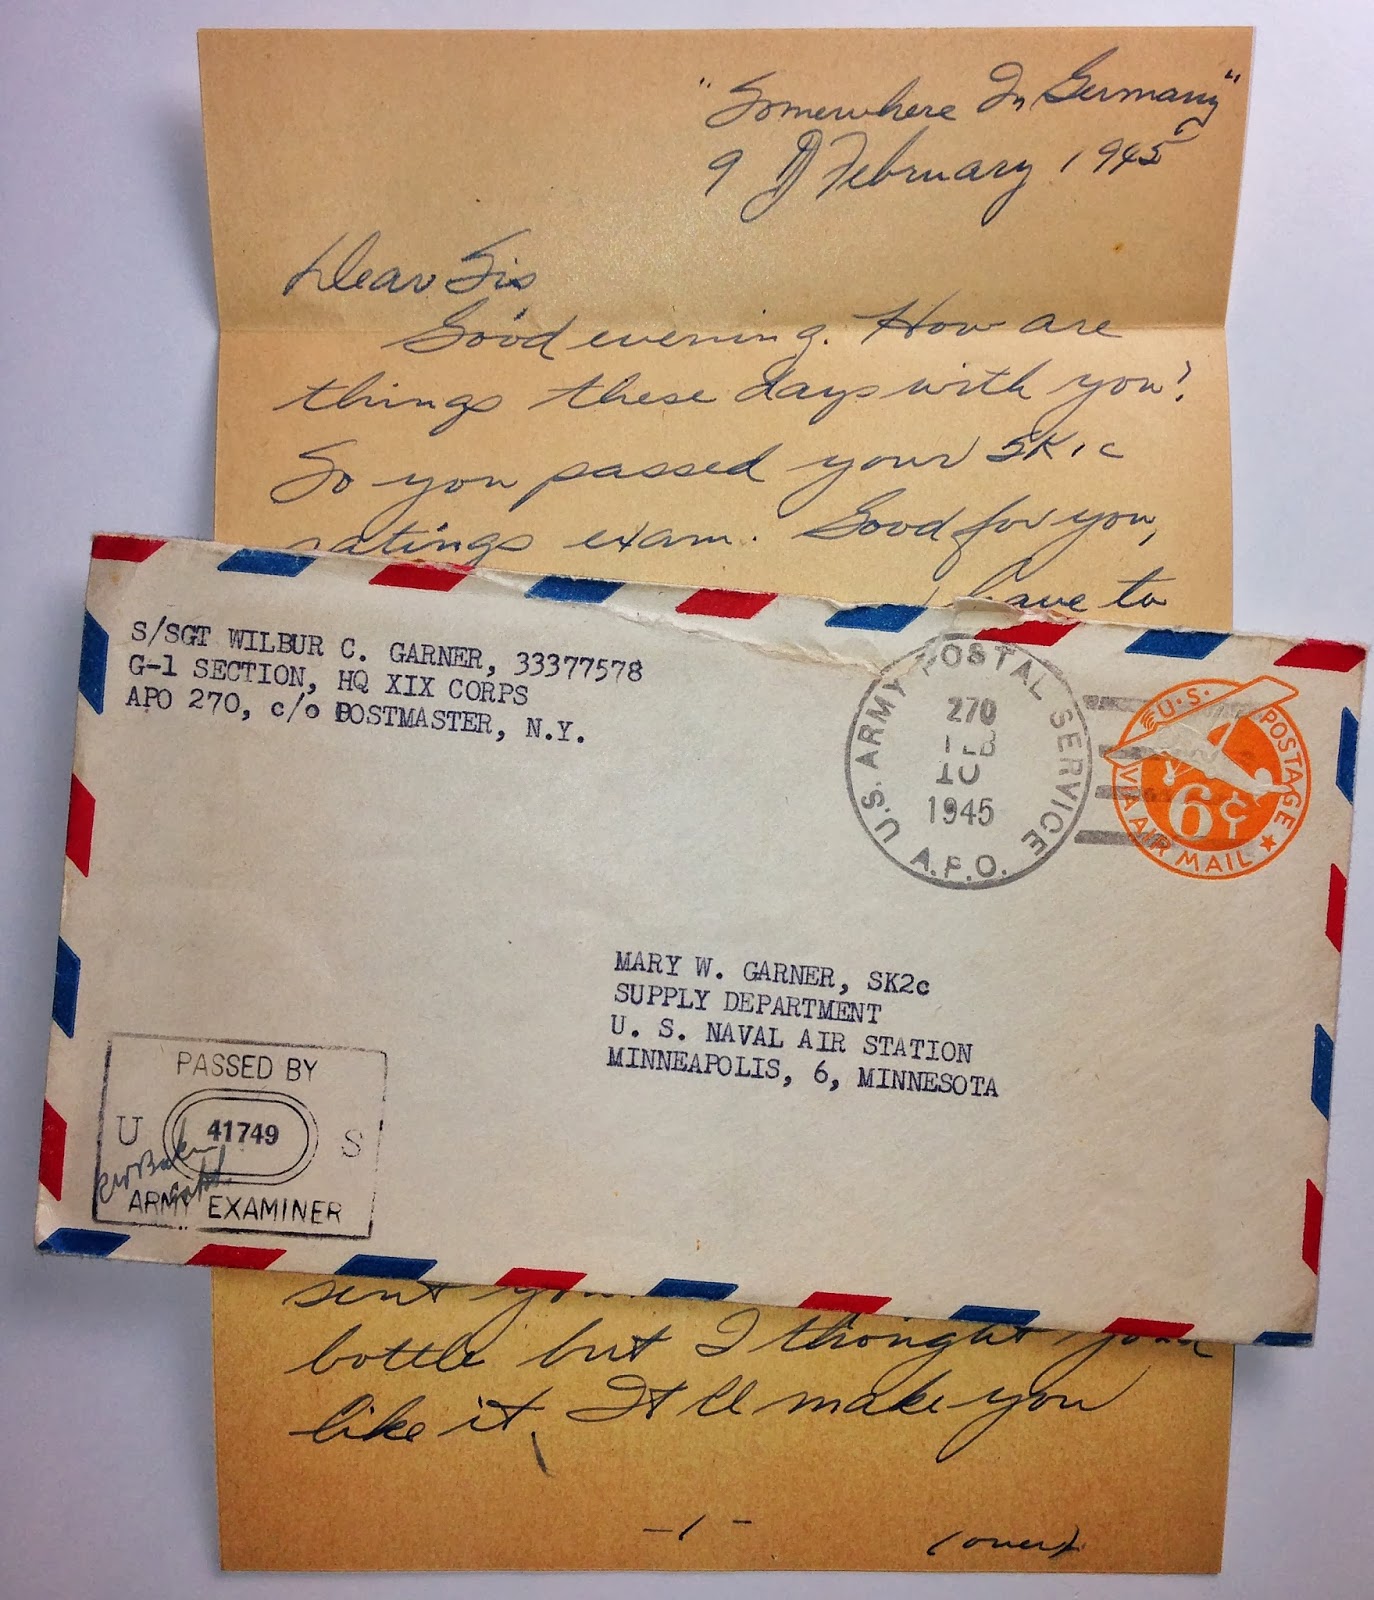 "Somewhere In Germany"
9 February 1945
Dear Sis
Good evening. How are
things these days with you?
So you passed your SK1c
ratings exam. Good for you,
have to
S/SGT WILBUR C. GARNER, 33377578
G-1 SECTION, HQ XIX CORPS
APO 270, c/o POSTMASTER, N.Y.
U.S. ARMY POSTAL SERVICE
A.P.O.
270
FEB
10
1945
U.S. POSTAGE
6¢
VIA AIR MAIL
MARY W. GARNER, SK2c
SUPPLY DEPARTMENT
U. S. NAVAL AIR STATION
MINNEAPOLIS, 6, MINNESOTA
PASSED BY
U 41749 S
ARMY EXAMINER
sent you
bottle but I thought you'd
like it, It'll make you
-1-
(over)